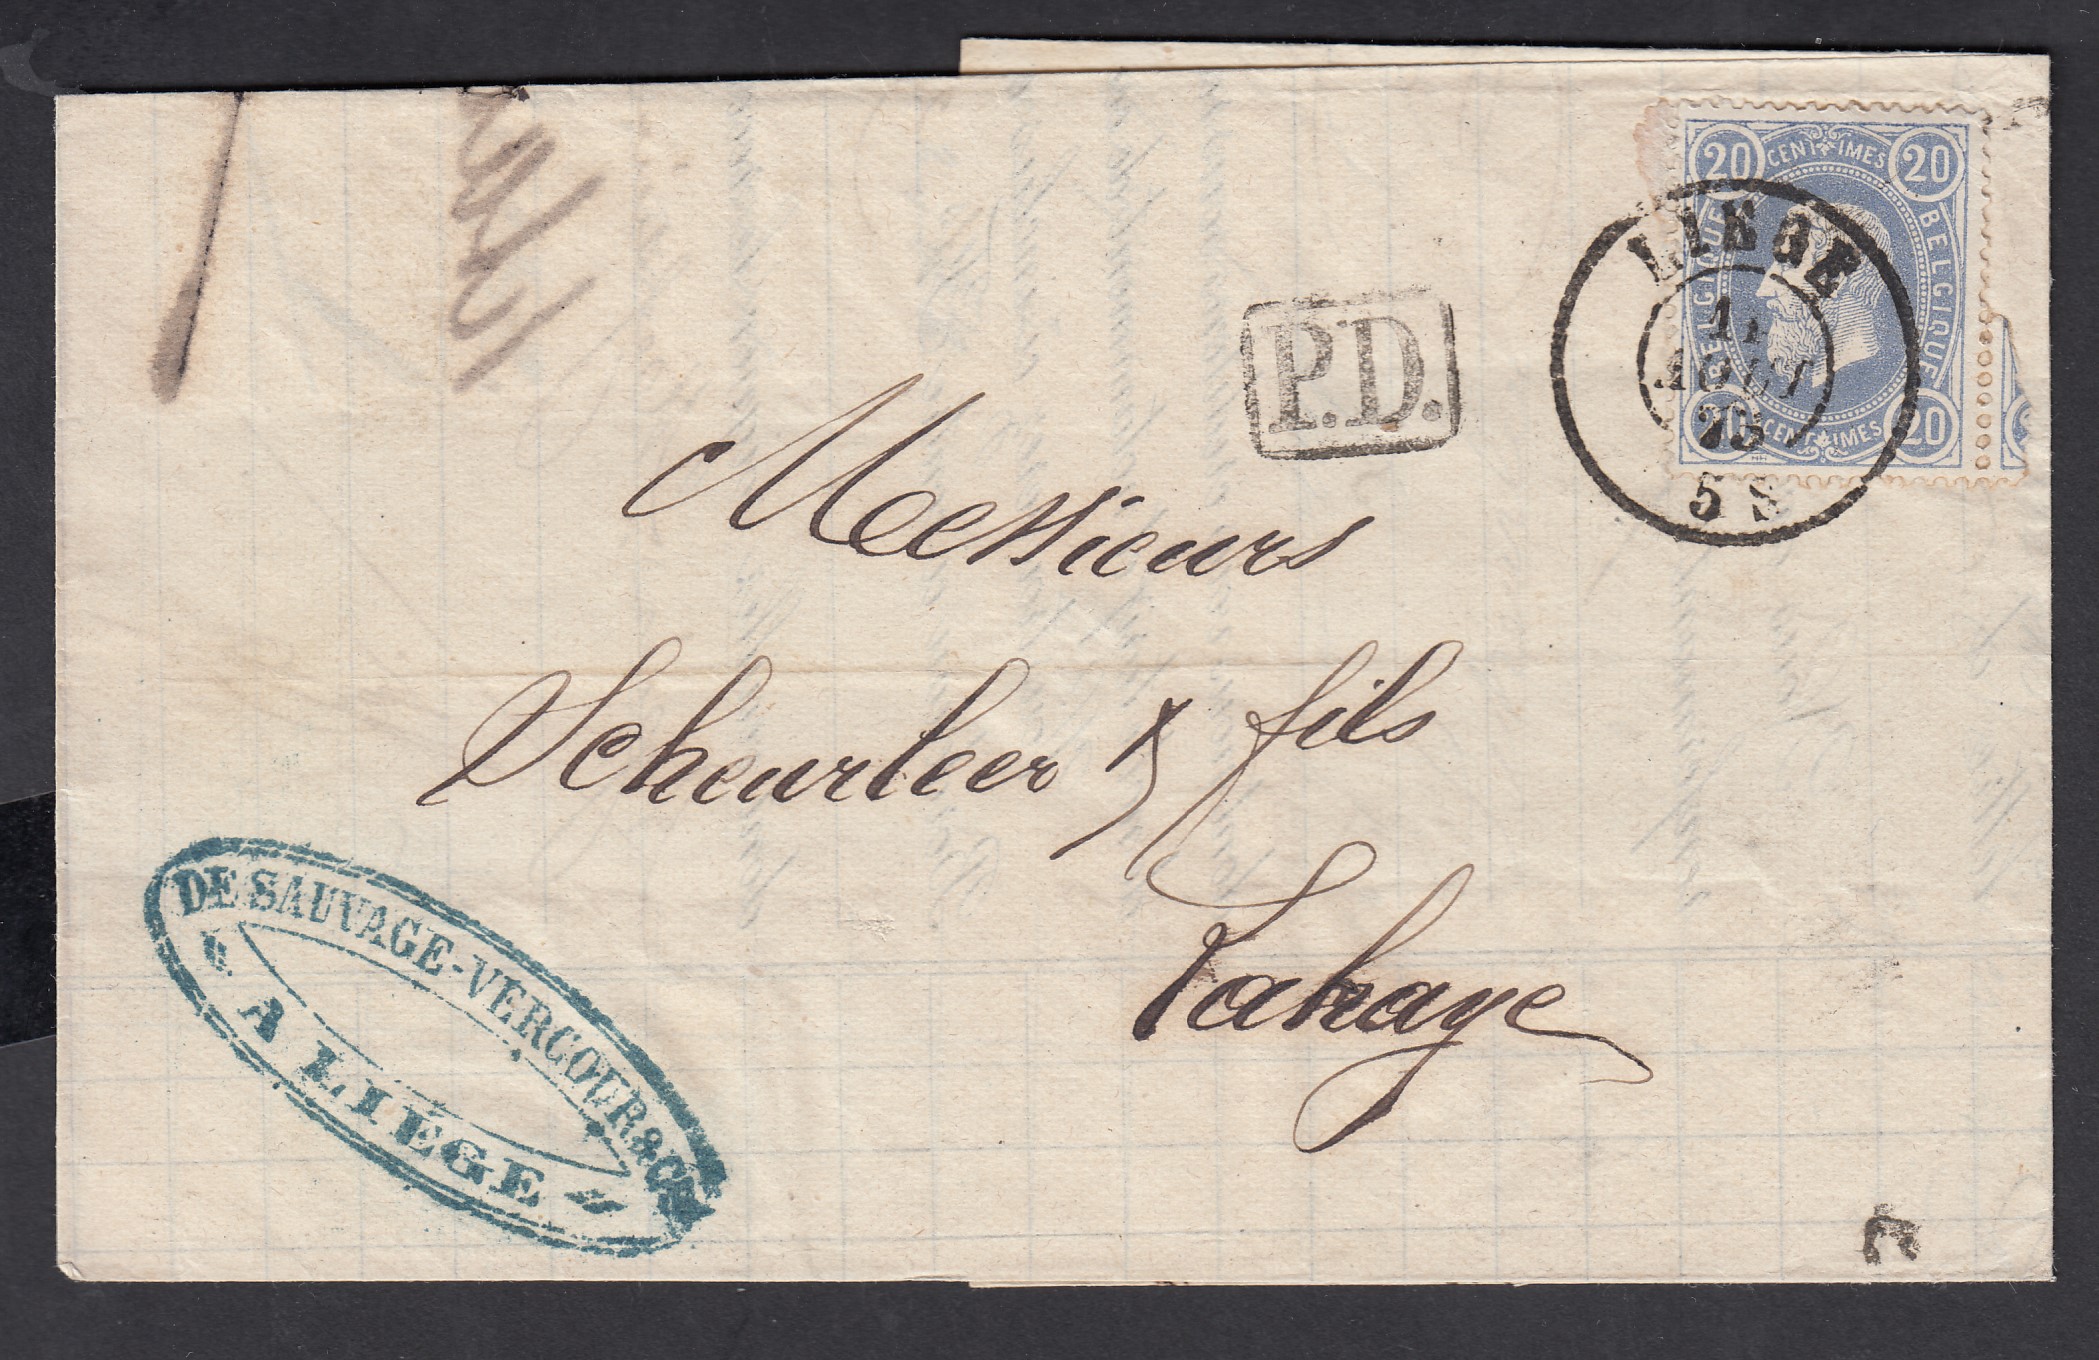 20 CENTIMES 20
BELGIQUE BELGIQUE
20 CENTIMES 20
LIEGE
AOUT
5 S
P.D.
Messieurs
Scheurleer & fils
Lahaye
DE SAUVAGE-VERCOUR & Cie
A LIEGE